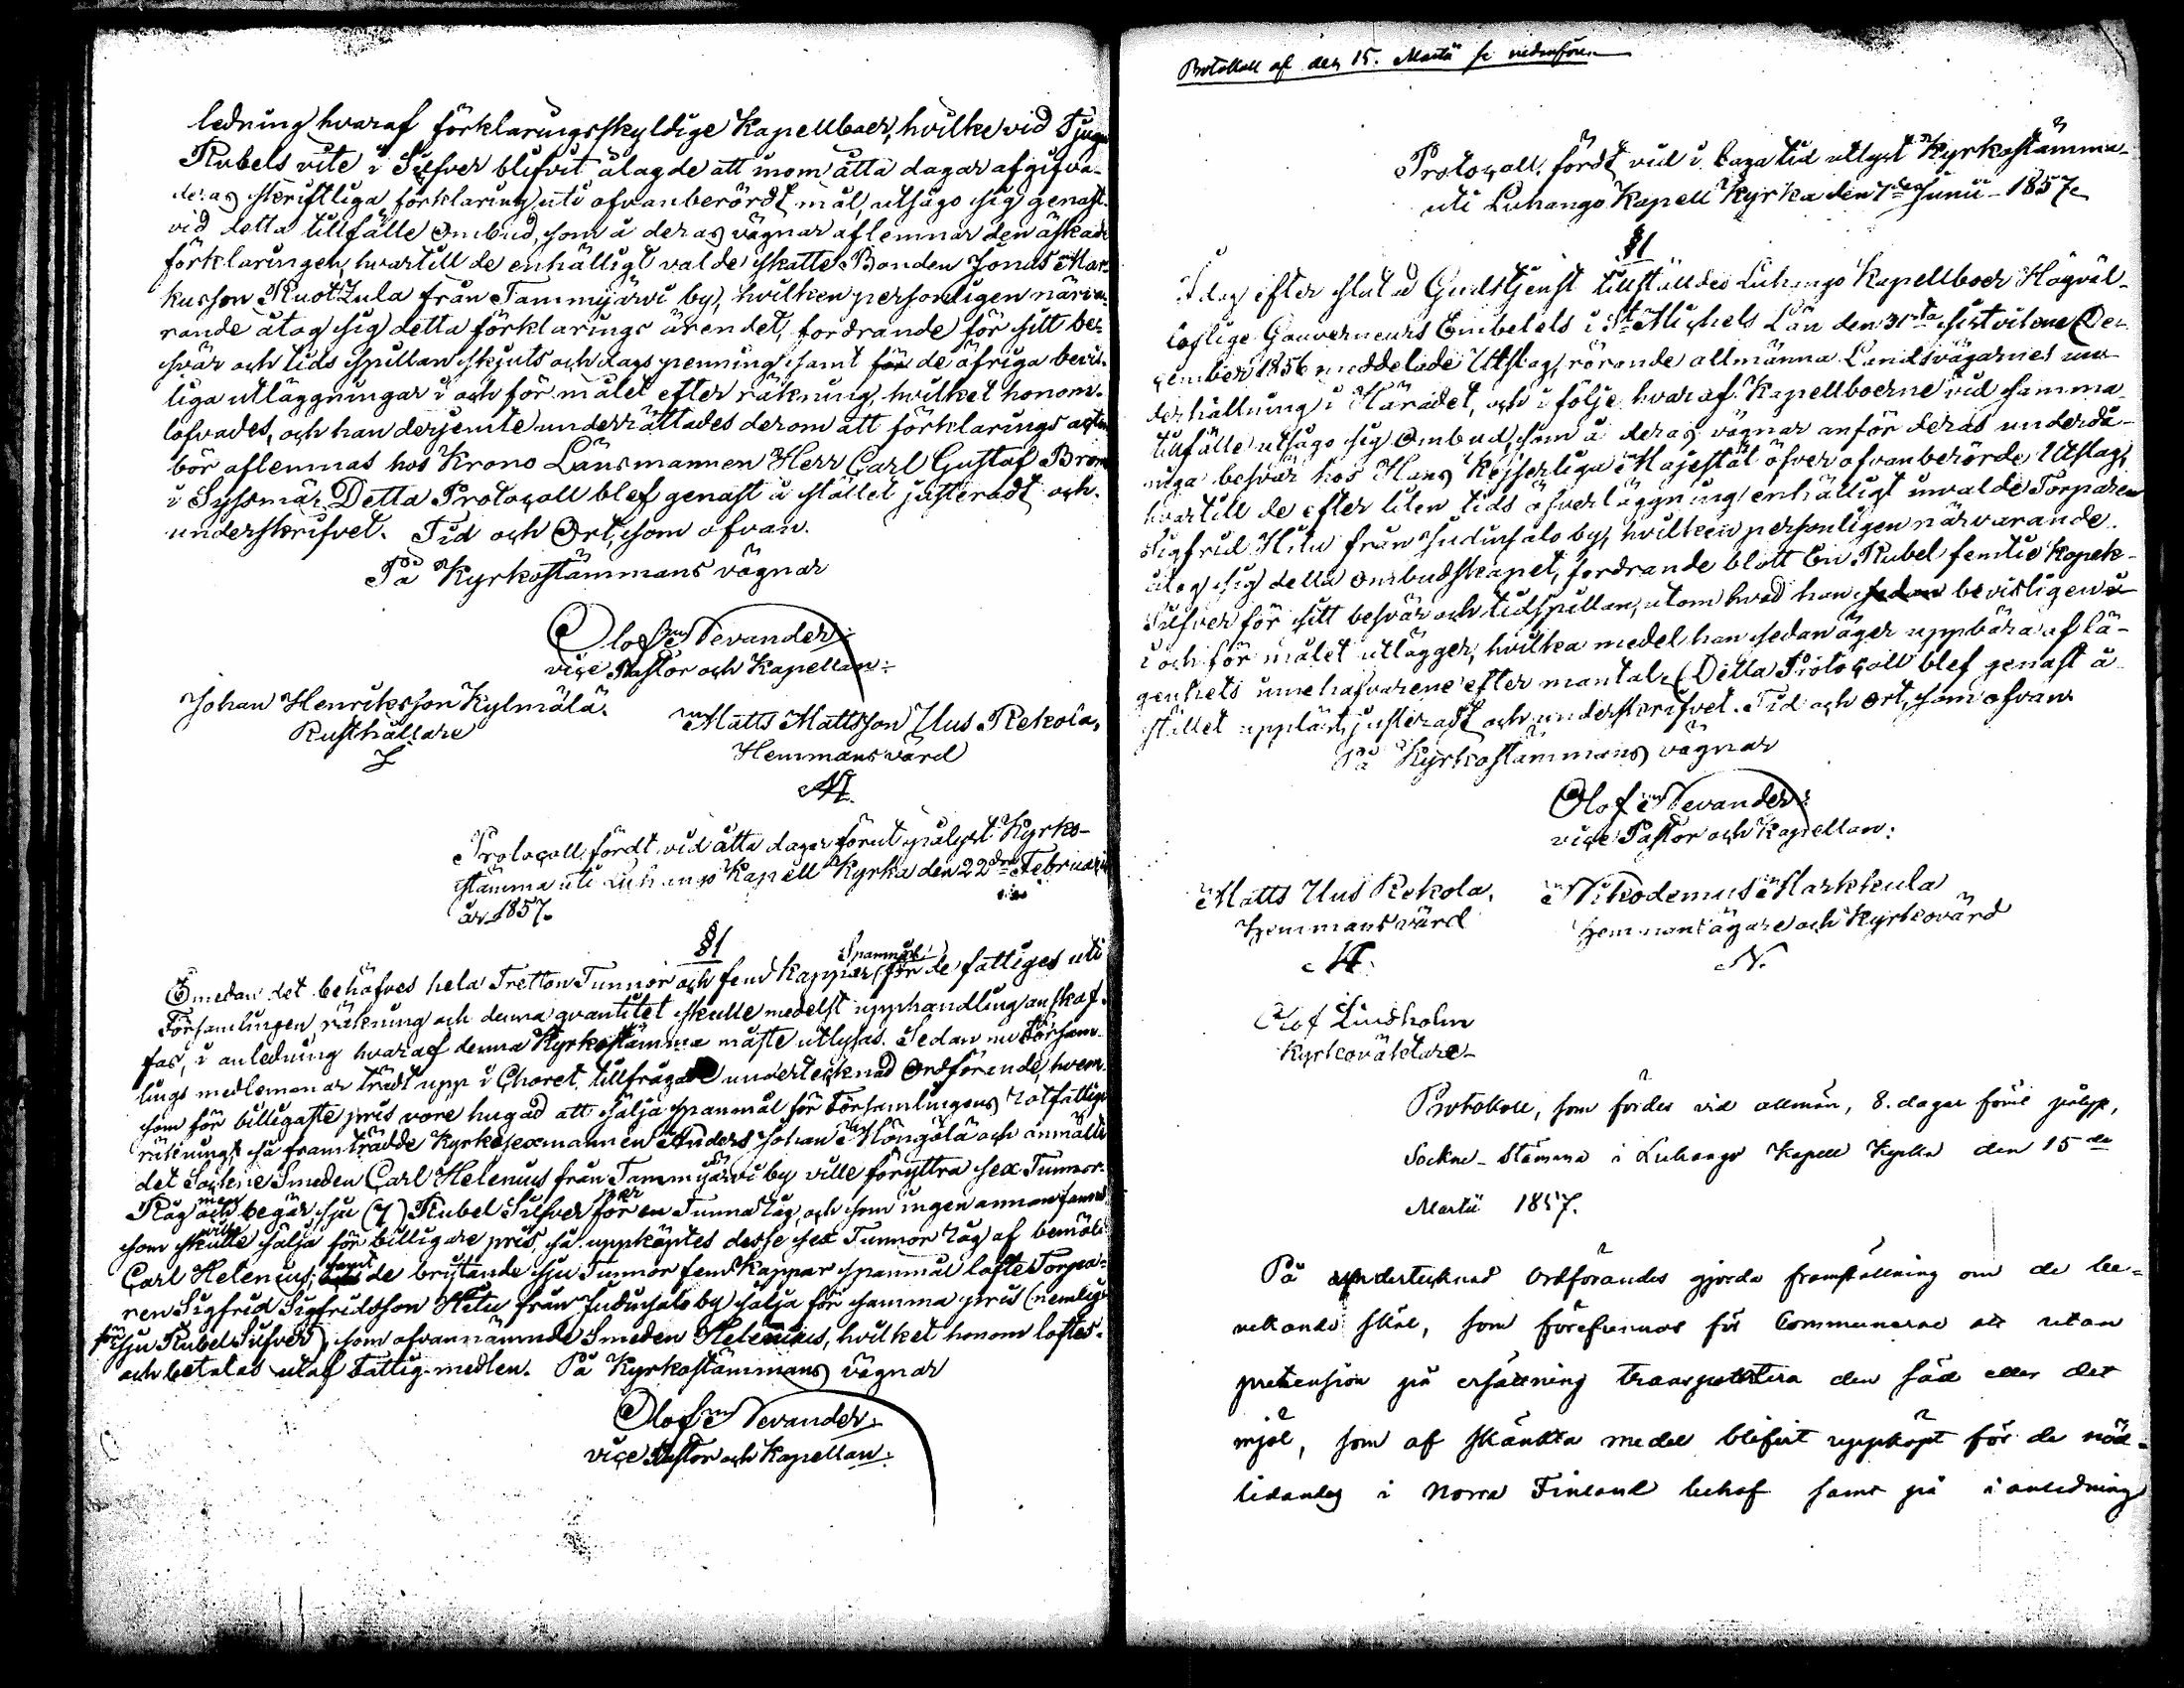 ledning hvaraf förklaringsskyldige Kapellboer, hvilke vid Tjugu
Rubels vite i Silfver blifvit ålagde att inom åtta dagar afgifva
deras skriftliga förklaring uti ofvanberördt mål, utsågo sig genast
vid detta tillfälle Ombud, som å deras vägnar aflemnar den äskade
förklaringen, hvartill de enhälligt valde skatte Bonden Jonas Mar-
kusson Ruotzula från Tammijärvi by, hvilken personligen närva-
rande åtog sig detta förklarings ärendet, fordrande för sitt be-
svär och tids spillan skjuts och dagspenning samt för de öfriga bevis-
liga utläggningar i och för målet efter räkning, hvilket honom
lofvades, och han derjemte underrättades derom att förklarings acten
bör aflemnas hos Krono Länsmannen Herr Carl Gustaf Brom
i Syssmä. Detta Protocoll blef genast å stället justeradt och
underskrifvet. Tid och Ort, som ofvan.
På Kyrkostämmans vägnar
Olof Nevander
vice Pastor och Kapellan.
Johan Henriksson Kylmälä.
Rusthållare
Matts Mattsson Uus Rekola,
Hemmansvärd
Protocoll fördt vid åtta dagar förut pålyst Kyrko-
stämma uti Luhango Kapell Kyrka den 22dra Februarii
år 1857.
§1
Emedan det behöfves hela Tretton Tunnor och fem kappar Spanmål för de fattiges uti
Församlingen räkning och denna qvantitet skulle medelst upphandling anskaf-
fas, i anledning hvaraf denna Kyrkostämma måste utlysas. Sedan nu Försam-
lings medlemmar trädt upp i Choret, tillfrågade undertecknad Ordförande, hvem
som för billigaste pris vore hugad att sälja spanmål för Församlingens rotfattige
räkning; så framträdde Kyrkosexmannen Anders Johan Höngölä och anmälte
det Sockne Smeden Carl Helenius från Tammijärvi by ville föryttra sex Tunnor
Råg men begär sju (7) Rubel Silfver per en Tunna råg, och som ingen annan fanns
som ville sälja för billigare pris, så uppköptes desse sex Tunnor råg af bemälte
Carl Helenius, samt de brytande sju Tunnor fem Kappar spanmål lofte Torpa-
ren Sigfrid Sigfridsson Hitu från Juduisalo by sälja för samma pris (nemlig
för sju Rubel Silfver), som ofvannämnde Smeden Helenius, hvilket honom loftes
och betalas utaf Fattig-medlen. På Kyrkostämmans vägnar
Olof Nevander
vice Pastor och Kapellan.
Protokoll af den 15. Martii se nedanföre.
Protocoll, fördt vid i laga tid utlyst Kyrkostämma
uti Luhango Kapell Kyrka den 7de Junii 1857.
§1
I dag efter slutad Gudstjenst tillställdes Luhango Kapellboer Högväl-
loflige Gouverneurs Embetets i St Michels Län den 31sta sistvikne De-
cember 1856 meddelade Utslag, rörande allmänna Landsvägarnes un-
derhållning i Häradet, och i följe hvaraf Kapellboerne vid samma
tillfälle utsågo sig Ombud, som å deras vägnar anför deras underdå-
niga besvär hos Hans Kejserliga Majestät öfver ofvanberörde Utslag,
hvartill de efter liten tids öfverläggning enhälligt invalde Torparen
Sigfrid Hitu från Juduisalo by, hvilken personligen närvarande
åtog sig detta ombudskapet, fordrande blott En Rubel femtio Kopek
Silfver för sitt besvär och tidspillan, utom hvad han bevisligen
i och för målet utlägger, hvilka medel han sedan äger uppbära af lä-
genhets innehafvarene efter mantal. Detta Protocoll blef genast å
stället uppläst, justeradt och underskrifvet. Tid och ort, som ofvan.
På Kyrkostämmans vägnar
Olof Nevander
vice Pastor och Kapellan.
Matts Uus Rekola,
Hemmansvärd
Nikodemus Markkula
Hemmansägare och Kyrkovärd
N.
Olof Lindholm
Kyrkoväktare
Protokoll, som fördes vid allmän, 8. dagar förut pålyst,
Sockne-Stämma i Luhango Kapell Kyrka den 15de
Martii 1857.
På undertecknad Ordförandes gjorda framställning om de be-
vekande skäl, som förefinnas för Communerne att utan
pretension på ersättning transportera den säd eller det
mjöl, som af skänkta medel blifvit uppköpt för de nöd-
lidandes i Norra Finland behof samt på i anledning